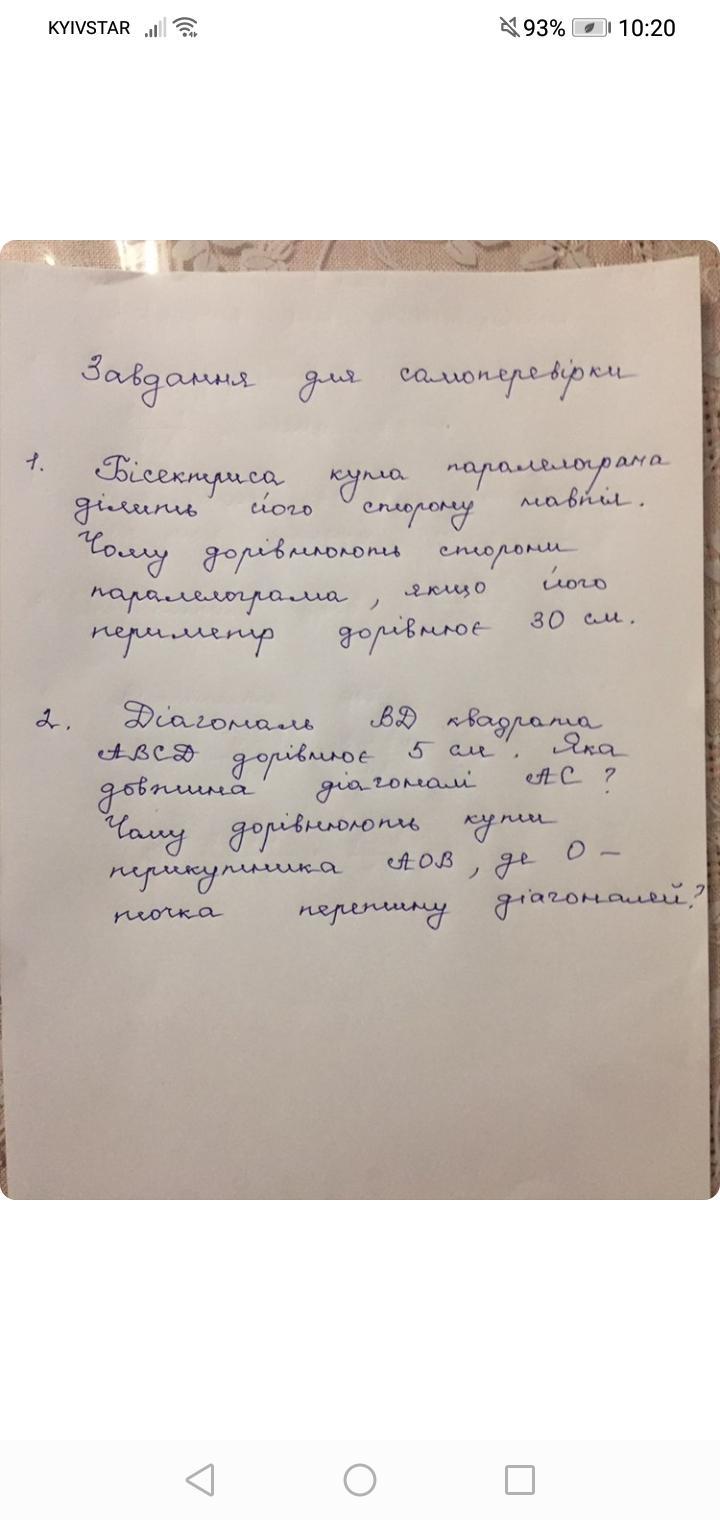 KYIVSTAR 93% 10:20
Завдання для самоперевірки
1. Бісектриса кута паралелограма
ділить його сторону навпіл.
Чому дорівнюють сторони
паралелограма, якщо його
периметр дорівнює 30 см.
2. Діагональ ВД квадрата
АВСД дорівнює 5 см. Яка
довжина діагоналі АС?
Чому дорівнюють кути
трикутника АОВ, де О –
точка перетину діагоналей?